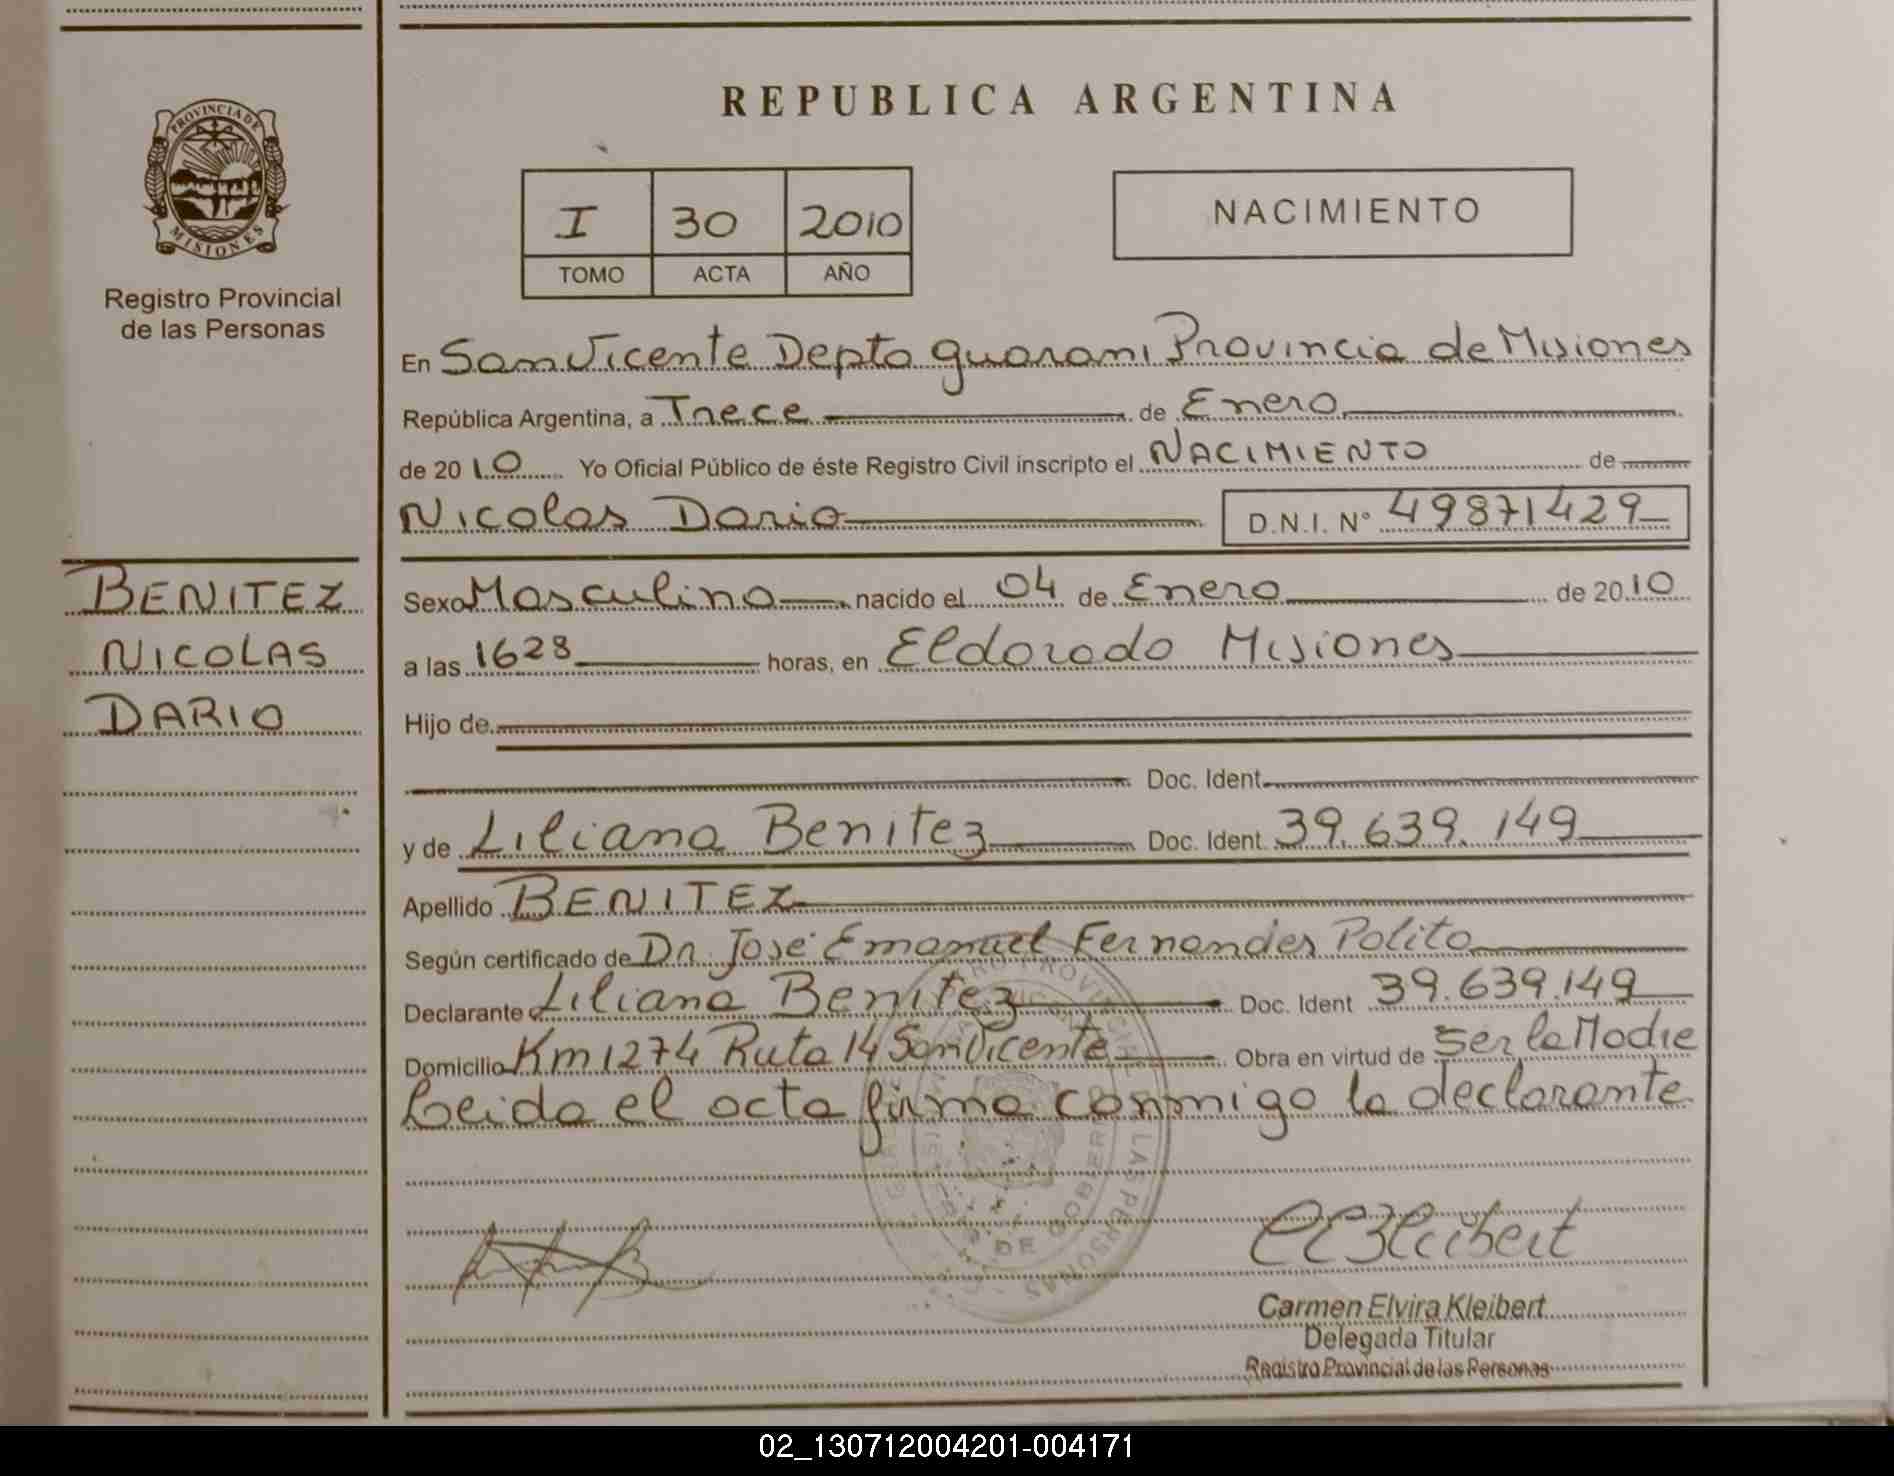 REPUBLICA ARGENTINA
PROVINCIA DE MISIONES
Registro Provincial
de las Personas
I 30 2010
TOMO ACTA AÑO
NACIMIENTO
En San Vicente Depto guarani Provincia de Misiones
República Argentina, a Trece de Enero
de 2010 Yo Oficial Público de éste Registro Civil inscripto el NACIMIENTO de
Nicolas Dario D.N.I. N° 49871429
BENITEZ
NICOLAS
DARIO
Sexo Masculino nacido el 04 de Enero de 2010
a las 1628 horas, en Eldorado Misiones
Hijo de
Doc. Ident.
y de Liliana Benitez Doc. Ident. 39.639.149
Apellido BENITEZ
Según certificado de Dr. José Emanuel Fernandes Polito
Declarante Liliana Benitez Doc. Ident 39.639.149
Domicilio Km 1274 Ruta 14 San Vicente Obra en virtud de Ser la Madre
Leida el acta firma conmigo la declarante
Carmen Elvira Kleibert
Delegada Titular
Registro Provincial de las Personas
02_130712004201-004171